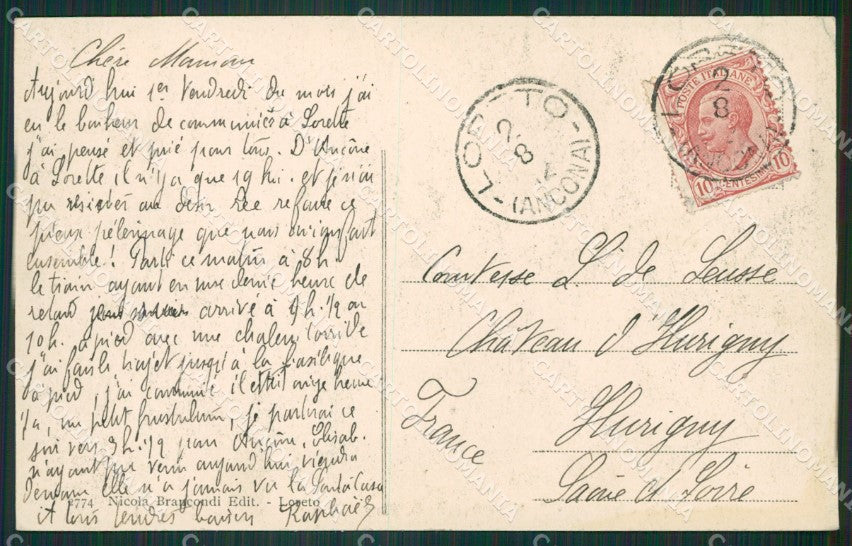 Chère Maman
Aujourd'hui 1er Vendredi du mois j'ai
eu le bonheur de communier à Lorette
j'ai pensé et prié pour tous. D'Ancône
à Lorette il n'y a que 19 ki. et je n'ai
pu résister au désir de refaire ce
pieux pélerinage que nous
ensemble! Parti ce matin à 8h
le train ayant eu une demie heure de
retard arrivé à 9h.1/2 ou
10h. à pied avec une chaleur torride
j'ai fait le trajet jusqu'à la basilique
à pied, j'ai communié il était onze heures
1/2, un petit frustulum, je partirai ce
soir vers 3h.1/2 pour Ancône. Elisab.
n'ayant pu venir aujourd'hui viendra
demain elle n'a jamais vu la Santa Casa
A tous tendres baisers Raphaël
2774 Nicola Brancondi Edit. - Loreto
LORETO
2
8
12
(ANCONA)
LORETO
2
8
POSTE ITALIANE
10 CENTESIMI 10
Comtesse L. de Leusse
Château d'Hurigny
Hurigny
Saône et Loire
France
CARTOLINOMANIA